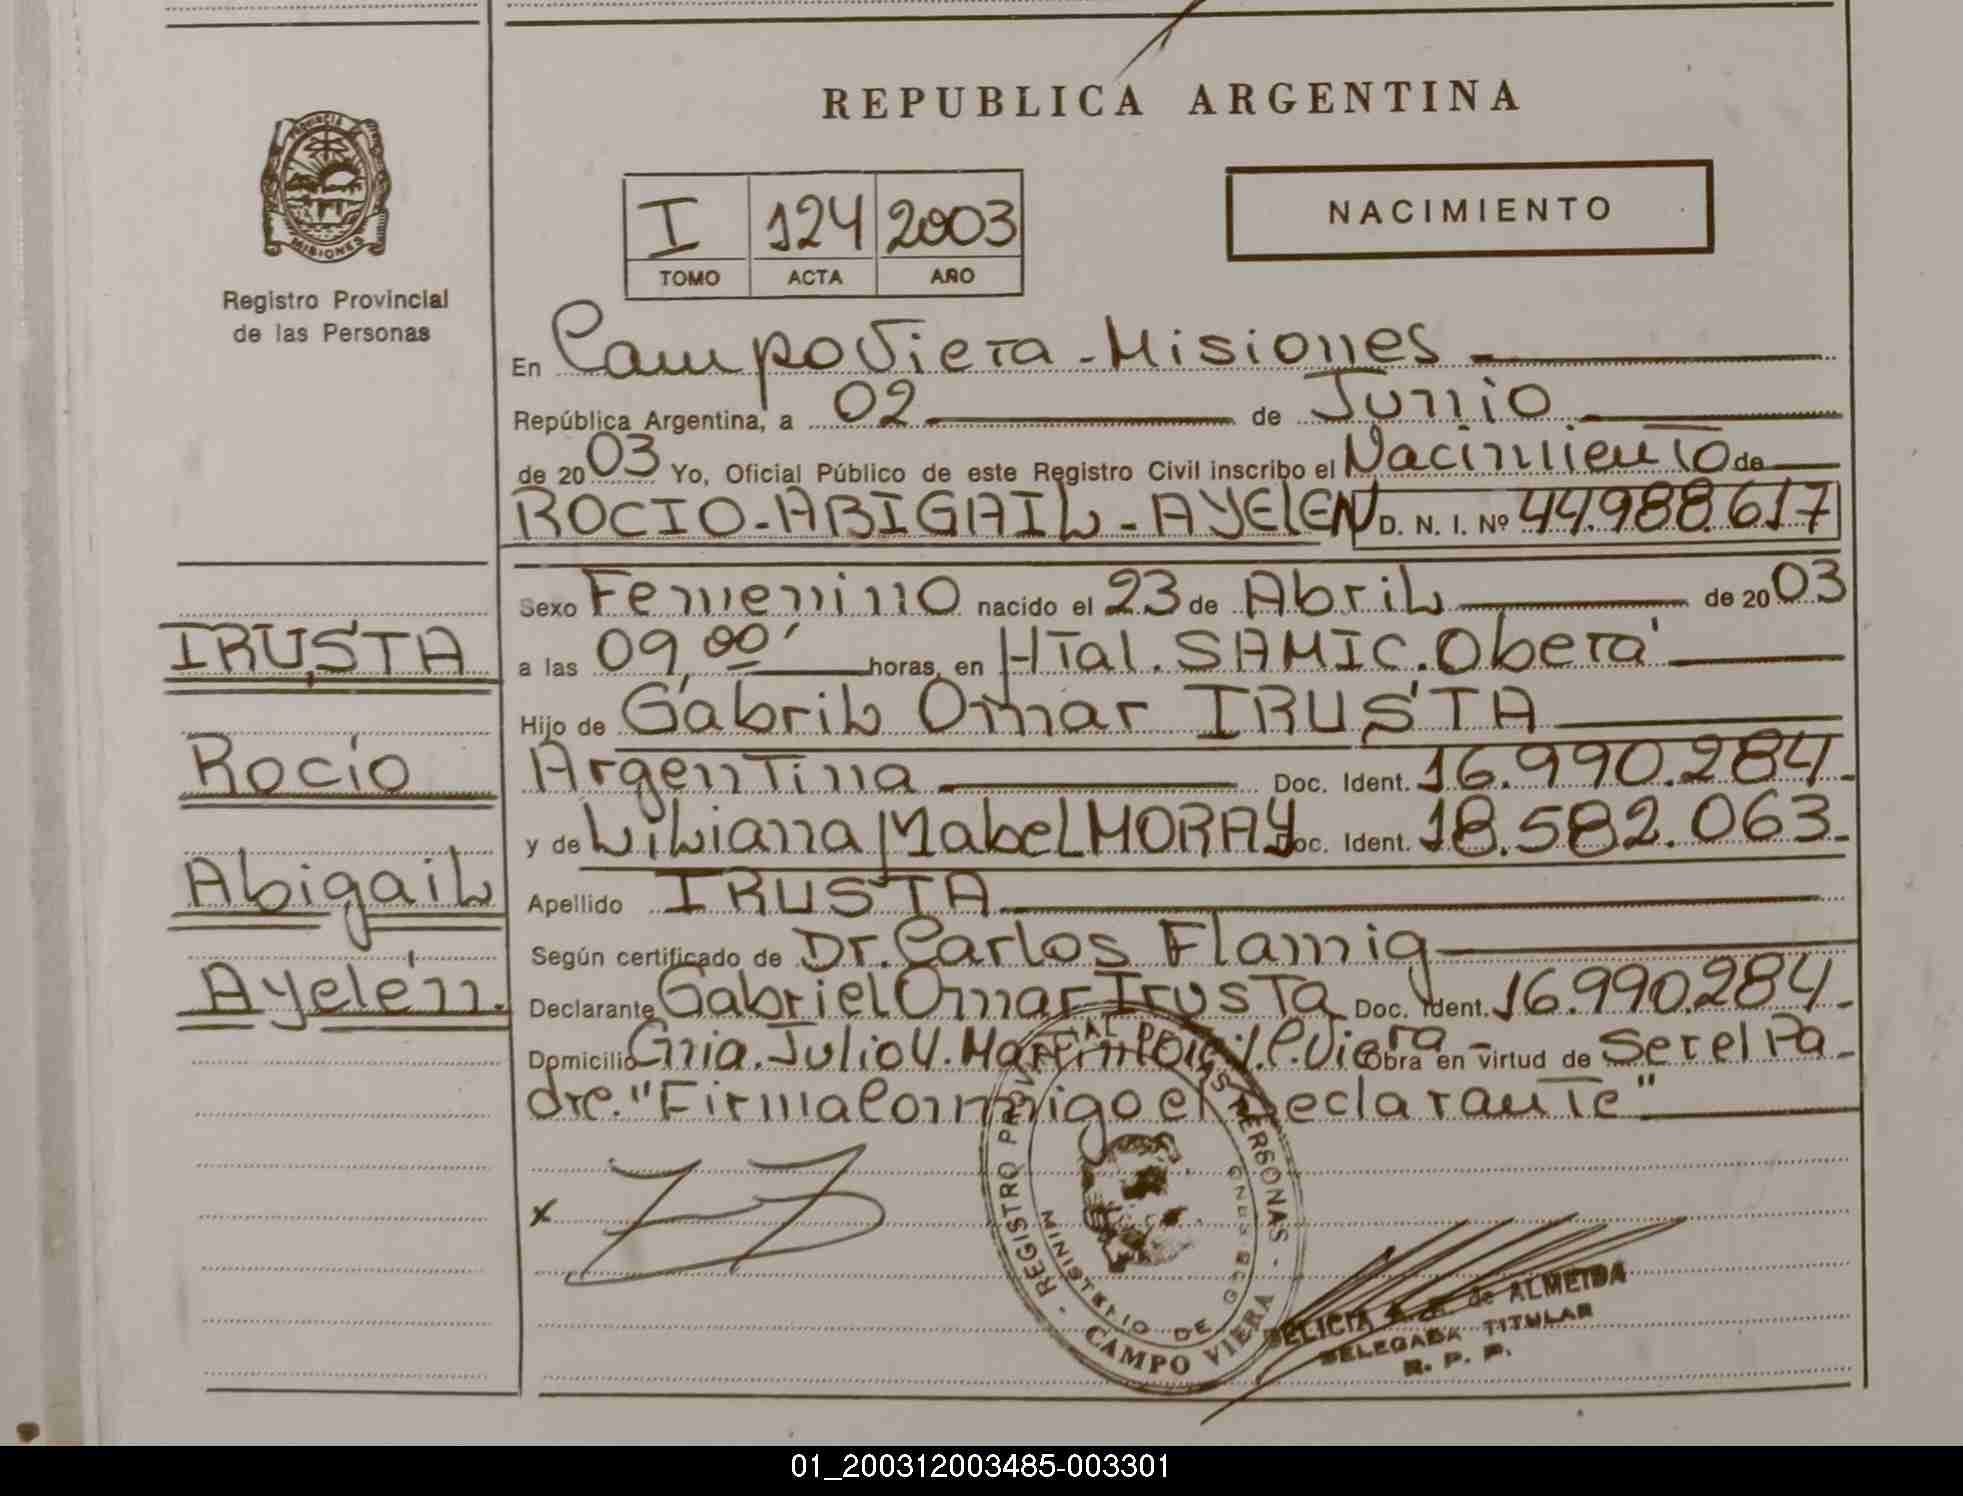 REPUBLICA ARGENTINA
PROVINCIA DE
MISIONES
Registro Provincial
de las Personas
I 124 2003
TOMO ACTA AÑO
NACIMIENTO
En Campo Viera - Misiones
República Argentina, a 02 de Junio
de 2003 Yo, Oficial Público de este Registro Civil inscribo el Nacimiento de
ROCIO - ABIGAIL - AYELEN D. N. I. Nº 44.988.617
Sexo Femenino nacido el 23 de Abril de 2003
a las 09,00' horas, en HTal. SAMIC. Oberá
Hijo de Gabril Omar IRUSTA
Argentina Doc. Ident. 16.990.284.-
y de Liliana Mabel MORAY Doc. Ident. 18.582.063.-
Apellido IRUSTA
Según certificado de Dr. Carlos Flamig
Declarante Gabriel Omar Irusta Doc. Ident. 16.990.284.-
Domicilio Cnia. Julio U. Martin C. Viera - Obra en virtud de Ser el Pa-
dre. "Firma Conmigo el Declarante"
IRUSTA
Rocío
Abigail
Ayelén.
x
REGISTRO PROVINCIAL DE LAS PERSONAS - CAMPO VIERA -
MINISTERIO DE GOBIERNO
DELICIA de ALMEIDA
DELEGADA TITULAR
R. P. P.
01_200312003485-003301